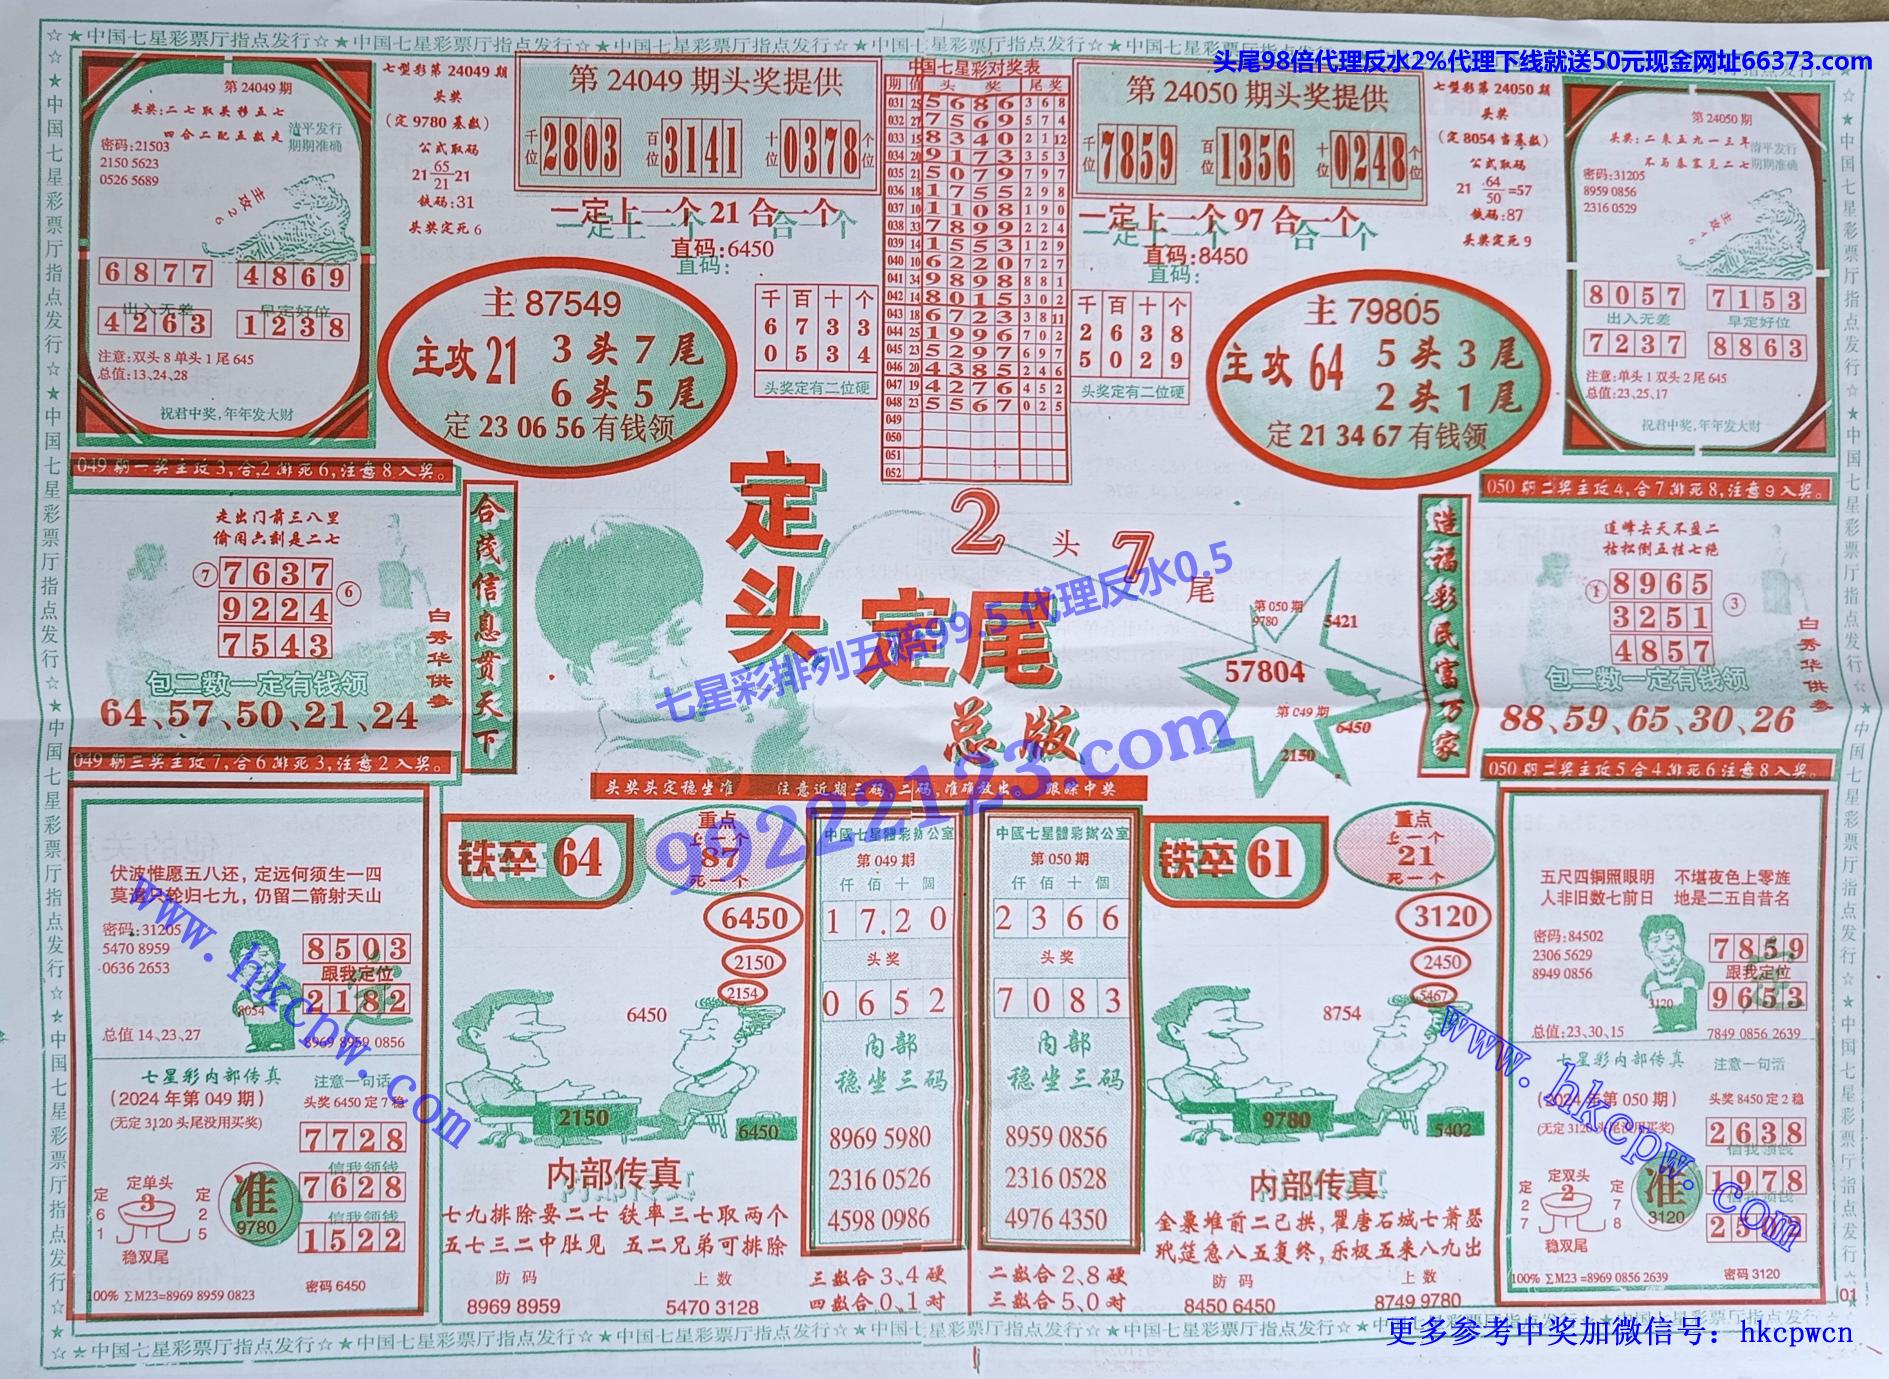 ☆★中国七星彩票厅指点发行☆★中国七星彩票厅指点发行☆★中国七星彩票厅指点发行☆★
头尾98倍代理反水2%代理下线就送50元现金网址66373.com
第 24049 期
头奖:二七取英移五七
四合二配五数走
清平发行
期期准确
密码:21503
2150 5623
0526 5689
主攻26
6877 4869
出入无差 早定好位
4263 1238
注意:双头8单头1尾645
总值:13、24、28
祝君中奖,年年发大财
七型彩第 24049 期
头奖
(定 9780 基数)
公式取码
21 65/21 21
铁码:31
头奖定死 6
第 24049 期头奖提供
千位 2803 百位 3141 十位 0378 个位
一定上一个 21 合一个
直码:6450
主 87549
主攻 21 3 头 7 尾
6 头 5 尾
定 23 06 56 有钱领
千 百 十 个
6 7 3 3
0 5 3 4
头奖定有二位硬
中国七星彩对奖表
期 值 头 奖 尾 奖
031 25 5 6 8 6 3 6 8
032 27 7 5 6 9 5 7 4
033 15 8 3 4 0 2 1 12
034 20 9 1 7 3 3 5 3
035 21 5 0 7 9 7 9 7
036 18 1 7 5 5 2 9 8
037 10 1 1 0 8 1 9 0
038 33 7 8 9 9 2 2 4
039 14 1 5 5 3 1 2 9
040 10 6 2 2 0 7 2 7
041 34 9 8 9 8 8 8 1
042 14 8 0 1 5 3 0 2
043 18 6 7 2 3 3 8 11
044 25 1 9 9 6 7 0 2
045 23 5 2 9 7 6 9 7
046 20 4 3 8 5 2 4 6
047 19 4 2 7 6 4 5 2
048 23 5 5 6 7 0 2 5
049
050
051
052
第 24050 期头奖提供
千位 7859 百位 1356 十位 0248 个位
一定上一个 97 合一个
直码:8450
千 百 十 个
2 6 3 8
5 0 2 9
头奖定有二位硬
主 79805
主攻 64 5 头 3 尾
2 头 1 尾
定 21 34 67 有钱领
七型彩第 24050 期
头奖
(定 8054 当基数)
公式取码
21 64/50 =57
铁码:87
头奖定死 9
第 24050 期
头奖:二来五九一三年
不与秦塞见二七
清平发行
期期准确
密码:31205
8959 0856
2316 0529
8057 7153
出入无差 早定好位
7237 8863
注意:单头1双头2尾645
总值:23、25、17
祝君中奖,年年发大财
049 期一奖主攻3,合,2排死6,注意8入奖。
走出门前三八里
偷闲六剩是二七
⑦ 7637 ⑥
9224
7543
包二数一定有钱领
64、57、50、21、24
白秀华供参
合茂信息贯天下
定头 定尾
2 头 7 尾
总版
七星彩排列五赔99.5 代理反水0.5
99222123.com
第 050 期
9780
5421
57804
第 049 期
6450
2150
头奖头定稳坐准 注意近期三码,二码,准确放出。 跟踪中奖
造福彩民富万家
050 期二奖主攻4,合7排死8,注意9入奖。
莲峰去天不盈二
枯松倒五挂七绝
① 8965 ③
3251
4857
包二数一定有钱领
88、59、65、30、26
白秀华供参
049 期三奖主攻7,合6排死3,注意2入奖。
伏波惟愿五八还,定远何须生一四
莫遣只轮归七九,仍留二箭射天山
密码:31205
5470 8959
0636 2653
8503
跟我定位
2182
8054
总值 14、23、27
8969 8959 0856
七星彩内部传真
(2024 年第 049 期)
(无定 3120 头尾没用买奖)
注意一句话
头奖 6450 定 7 稳
7728
信我领钱
7628
信我领钱
1522
定单头
定61 3 定25
稳双尾
准
9780
100% ΣM23=8969 8959 0823
密码 6450
铁卒 64
重点
上一个
87
死一个
6450
2150
2154
6450
2150
6450
内部传真
七九排除要二七 铁率三七取两个
五七三二中肚见 五二兄弟可排除
防码 上数
8969 8959 5470 3128
中國七星體彩辦公室
第 049 期
仟 佰 十 個
1 7.2 0
头奖
0 6 5 2
内部
稳坐三码
8969 5980
2316 0526
4598 0986
三数合 3、4 硬
四数合 0、1 对
中國七星體彩辦公室
第 050 期
仟 佰 十 個
2 3 6 6
头奖
7 0 8 3
内部
稳坐三码
8959 0856
2316 0528
4976 4350
二数合 2、8 硬
三数合 5、0 对
铁卒 61
重点
上一个
21
死一个
3120
2450
5467
8754
9780
5402
内部传真
金粟堆前二已拱,瞿唐石城七萧瑟
玳筵急八五复终,乐极五来八九出
防码 上数
8450 6450 8749 9780
050 期二奖主攻5合4排死6注意8入奖。
五尺四铜照眼明 不堪夜色上零旌
人非旧数七前日 地是二五自昔名
密码:84502
2306 5629
8949 0856
7859
跟我定位
9653
3120
总值:23、30、15
7849 0856 2639
七星彩内部传真
(2024 年第 050 期)
(无定 3120 头尾没用买奖)
注意一句话
头奖 8450 定 2 稳
2638
信我领钱
1978
信我领钱
2502
定双头
定27 2 定78
稳双尾
准
3120
100% ΣM23=8969 0856 2639
密码 3120
01
www.hkcpw.com
www.hkcpwcn.com
☆★中国七星彩票厅指点发行☆★中国七星彩票厅指点发行☆★中国七星彩票厅指点发行☆★
更多参考中奖加微信号：hkcpwcn